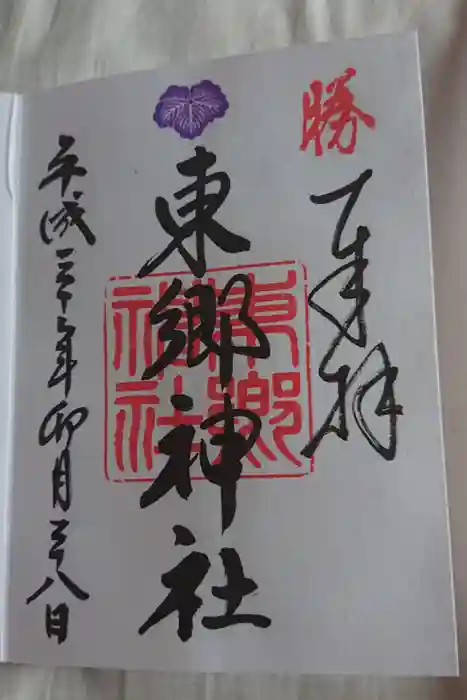 勝
奉拝
東郷神社
東郷神社
平成二十二年卯月二十八日